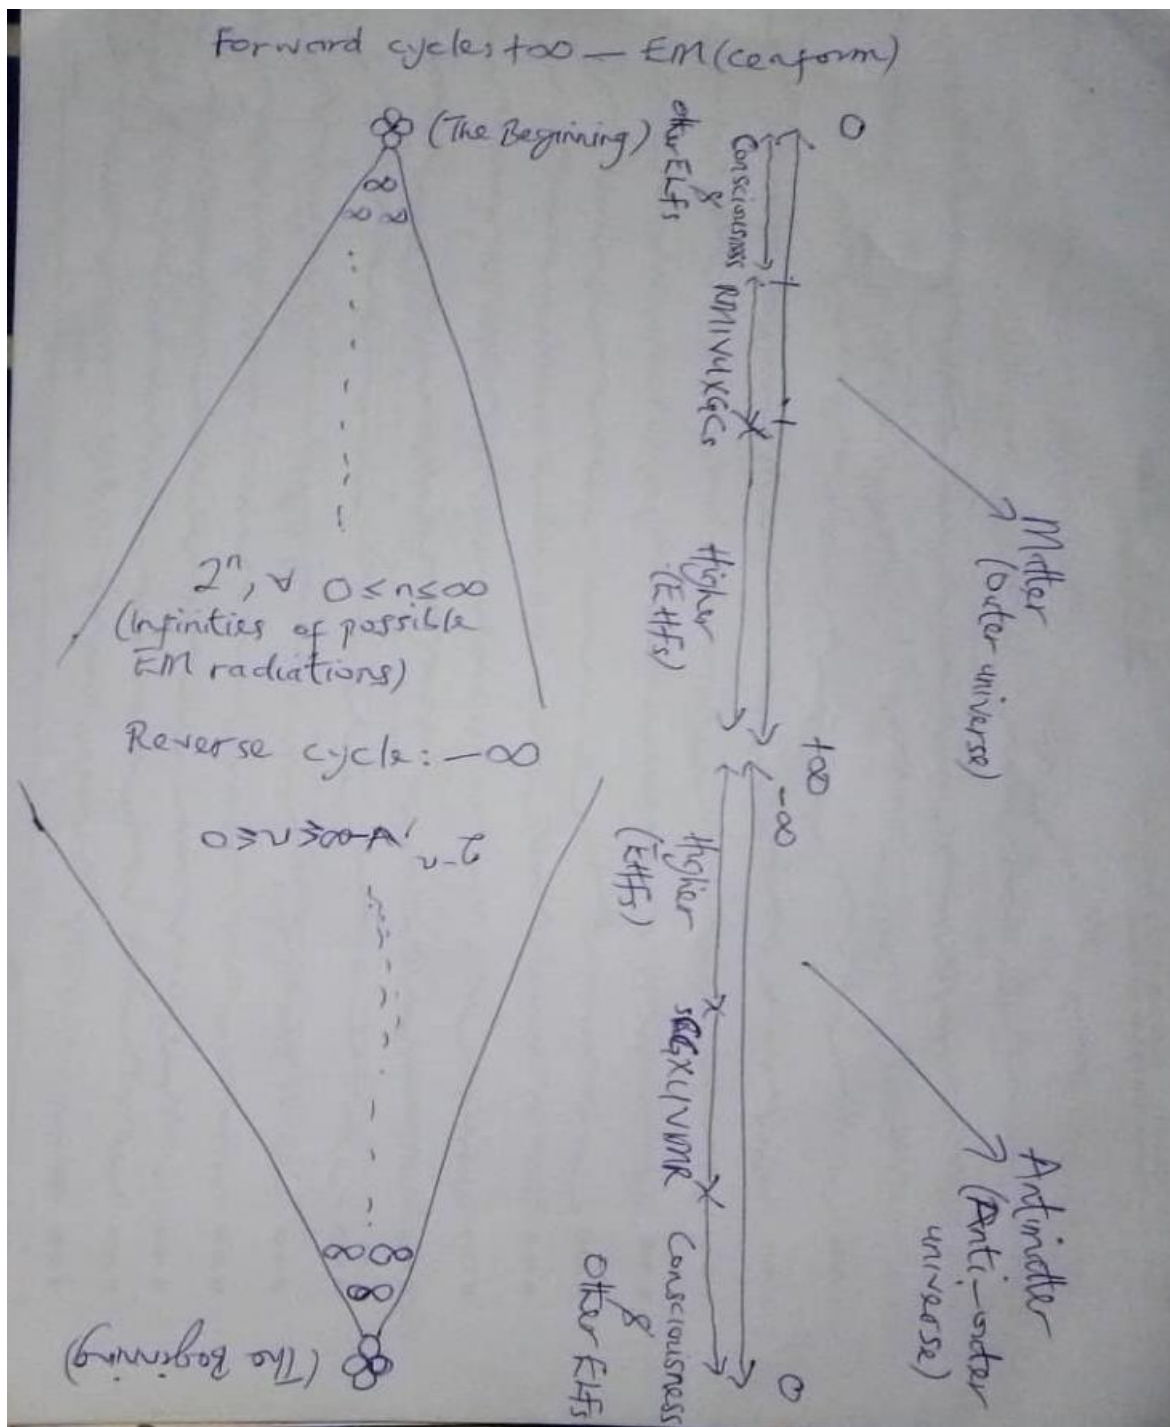 Forward cycles +∞ — EM (conform)
(The Beginning)
∞
∞ ∞
2ⁿ, ∀ 0 ≤ n ≤ ∞
(Infinities of possible
EM radiations)
Reverse cycle: -∞
2⁻ⁿ, ∀ -∞ ≤ n ≤ 0
∞ ∞
∞
(The Beginning)
0
Consciousness
&
other ELFs
RMIVUXGCs
Higher
(EHFs)
+∞
Matter
(Outer universe)
-∞
Higher
(EHFs)
Consciousness
&
Other ELFs
0
Antimatter
(Anti-outer
universe)